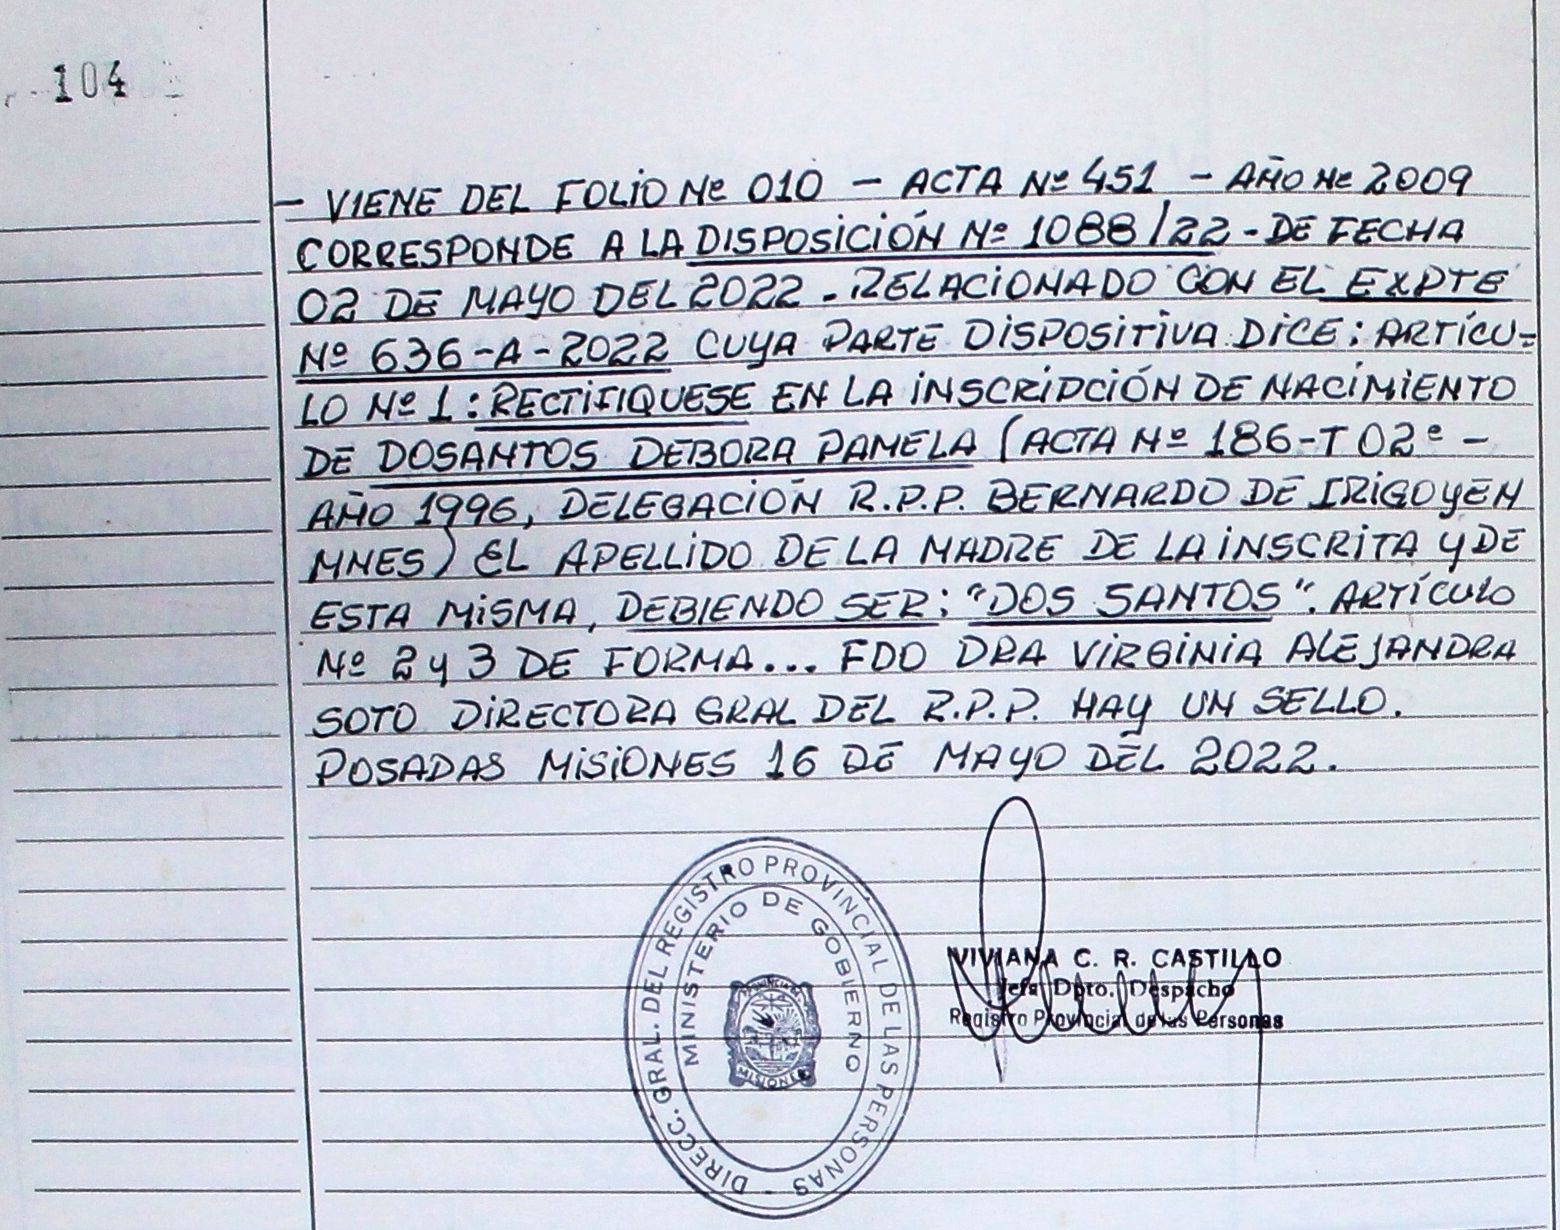 104
- VIENE DEL FOLIO Nº 010 - ACTA Nº 451 - AÑO Nº 2009
CORRESPONDE A LA DISPOSICIÓN Nº 1088/22 - DE FECHA
02 DE MAYO DEL 2022 - RELACIONADO CON EL EXPTE
Nº 636-A-2022 CUYA PARTE DISPOSITIVA DICE: ARTÍCU=
LO Nº 1: RECTIFIQUESE EN LA INSCRIPCIÓN DE NACIMIENTO
DE DOSANTOS DEBORA PAMELA (ACTA Nº 186-T 02º -
AÑO 1996, DELEGACIÓN R.P.P. BERNARDO DE IRIGOYEN
MNES) EL APELLIDO DE LA MADRE DE LA INSCRITA Y DE
ESTA MISMA, DEBIENDO SER: "DOS SANTOS". ARTÍCULO
Nº 2 Y 3 DE FORMA... FDO DRA VIRGINIA ALEJANDRA
SOTO DIRECTORA GRAL DEL R.P.P. HAY UN SELLO.
POSADAS MISIONES 16 DE MAYO DEL 2022.
DIRECC. GRAL. DEL REGISTRO PROVINCIAL DE LAS PERSONAS -
MINISTERIO DE GOBIERNO
PROVINCIA DE
MISIONES
VIVIANA C. R. CASTILLO
Jefa Dpto. Despacho
Registro Provincial de las Personas